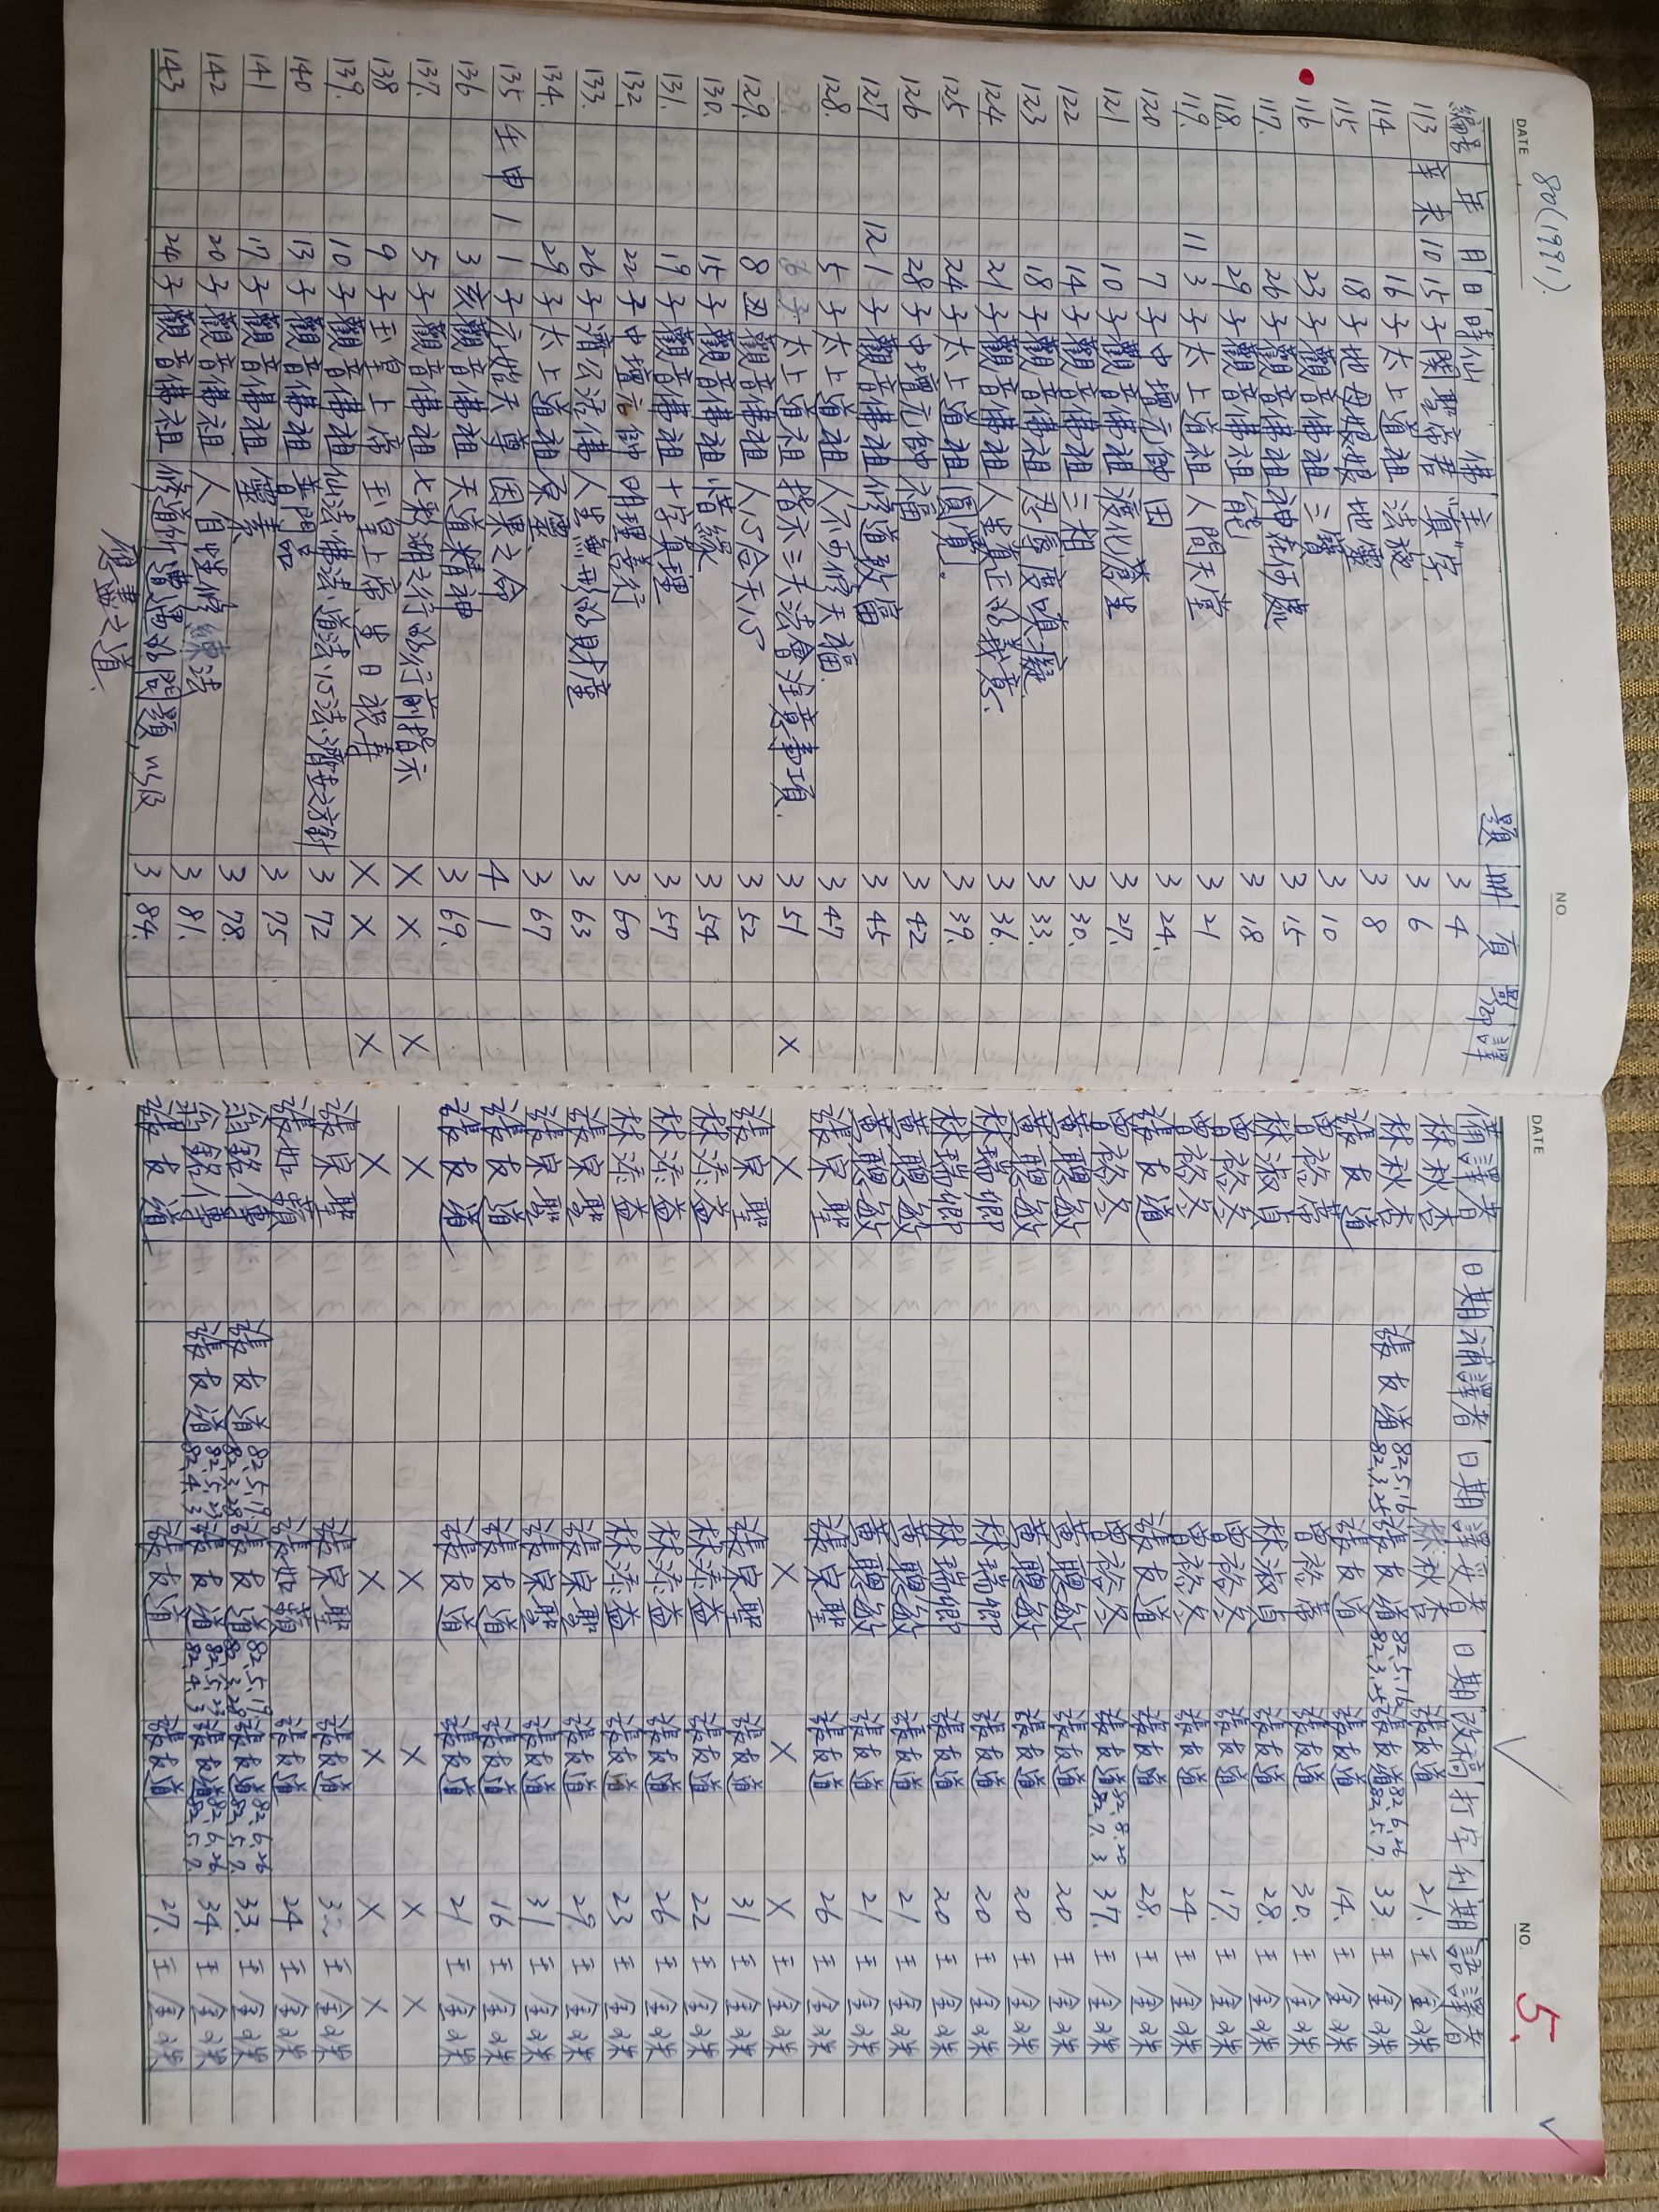 DATE 80(1991). NO.
編号 年 月 日 時 仙佛 主題 冊 頁 錄音
113. 辛未 10 15 子 關聖帝君 "真"字 3 4
114 16 子 太上道祖 法救 3 6
115 18 子 地母娘娘 地靈 3 8
116 23 子 觀音佛祖 三寶 3 10
117. 26 子 觀音佛祖 神在何處 3 15
118. 29 子 觀音佛祖 能 3 18
119. 11 3 子 太上道祖 人間天堂 3 21
120 7 子 中壇元帥 因 3 24.
121 10 子 觀音佛祖 渡化眾生 3 27.
122 14 子 觀音佛祖 三相 3 30.
123 18 子 觀音佛祖 忍辱度嗔癡 3 33.
124 21 子 觀音佛祖 人生真正的義意. 3 36.
125 24 子 太上道祖 圓寶. 3 39.
126 28 子 中壇元帥 福 3 42
127 12 1 子 觀音佛祖 修道致富 3 45
128. 5 子 太上道祖 人不可修天福. 3 47
8 子 太上道祖 指示三天法會注意事項. 3 51 ×
129. 8 丑 觀音佛祖 人心合天心 3 52
130. 15 子 觀音佛祖 惜緣 3 54
131. 19 子 觀音佛祖 十字真理 3 57
132. 22 子 中壇元帥 明理善行 3 60
133. 26 子 濟公活佛 人生無形的財產 3 63
134. 29 子 太上道祖 原靈. 3 67
135 壬申 1 1 子 元始天尊 因果之命 4 1
136 3 亥 觀音佛祖 天道精神 3 69.
137. 5 子 觀音佛祖 七彩湖之行的行前指示 × × ×
138 9 子 玉皇上帝 玉皇上帝聖日祝壽 × × ×
139. 10 子 觀音佛祖 仙法.佛法.道法.心法.濟世之方針 3 72
140 13 子 觀音佛祖 普門品 3 75
141 17 子 觀音佛祖 靈義. 3 78.
142 20 子 觀音佛祖 人自性修煉法 3 81.
143 24 子 觀音佛祖 修道所當遇的問題,以及 3 84.
應盡之道.
DATE NO. 5.
備譯者 日期 補譯者 日期 譯文者 日期 改稿打字 刊期 語譯者
林秋杏 林秋杏 張友道 21. 王金珠
林秋杏 張友道 82.5.16 82.3.25 張友道 82.5.16 82.3.25 張友道 82.6.26 82.5.7. 33. 王金珠
張友道 張友道 張友道 14. 王金珠
曾啟蒂 曾啟蒂 張友道 30. 王金珠
林淑貞 林淑貞 張友道 28. 王金珠
曾啟文 曾啟文 張友道 17. 王金珠
曾啟文 曾啟文 張友道 24 王金珠
張友道 張友道 張友道 28. 王金珠
曾啟文 曾啟文 張友道 82.8.20 82.7.3. 37. 王金珠
黃聰敏 黃聰敏 張友道 20. 王金珠
黃聰敏 黃聰敏 張友道 20 王金珠
林瑞娜 林瑞娜 張友道 20 王金珠
林瑞娜 林瑞娜 張友道 20 王金珠
黃聰敏 黃聰敏 張友道 21 王金珠
黃聰敏 黃聰敏 張友道 21 王金珠
張泉聖 張泉聖 張友道 26 王金珠
× × × × 王金珠
張泉聖 張泉聖 張友道 31 王金珠
林添益 林添益 張友道 22 王金珠
林添益 林添益 張友道 26 王金珠
林添益 林添益 張友道 23 王金珠
張泉聖 張泉聖 張友道 29. 王金珠
張泉聖 張泉聖 張友道 31 王金珠
張友道 張友道 張友道 16 王金珠
張友道 張友道 張友道 21 王金珠
× × × × ×
× × × × ×
張泉聖 張泉聖 張友道 32. 王金珠
張如蘋 張如蘋 張友道 24 王金珠
張友道 82.5.19. 82.3.28 張友道 82.5.19 張友道 82.6.26 82.5.7. 33. 王金珠
張友道 82.5.23 82.4.3 張友道 82.5.23 82.4.3 張友道 82.6.26 82.5.7. 34. 王金珠
張友道 張友道 張友道 27. 王金珠